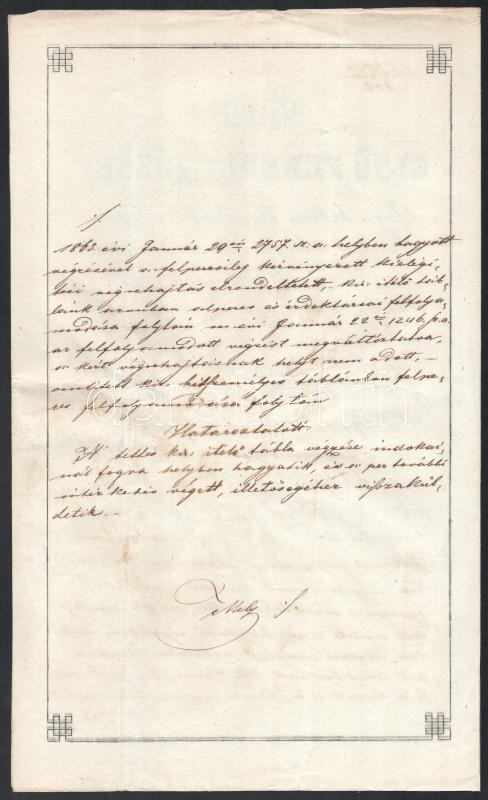 ·/.
1863. évi Január 29én 2757. sz. a. helyben hagyott
végzésével a felperesileg kérvényezett kielégi-
tési végrehajtás elrendeltetett, kir. itélő táb-
lánk azonban alperes és érdektársai felfolya-
modása folytán m. évi Január 22én 1246. sz. a.
az felfolyamodott végzést megváltoztatva,
a kért végrehajtásnak helyt nem adott, –
emlitett kir. hétszemélyes táblánkon felpe-
res felfolyamodása folytán
Határoztatott:
A tettes kir. itélő tábla végzése indokai-
nál fogva helyben hagyatik, és a per további
intézkedés végett, illetőségéhez visszaküld-
detik. –
Mely ·/.
darabanth